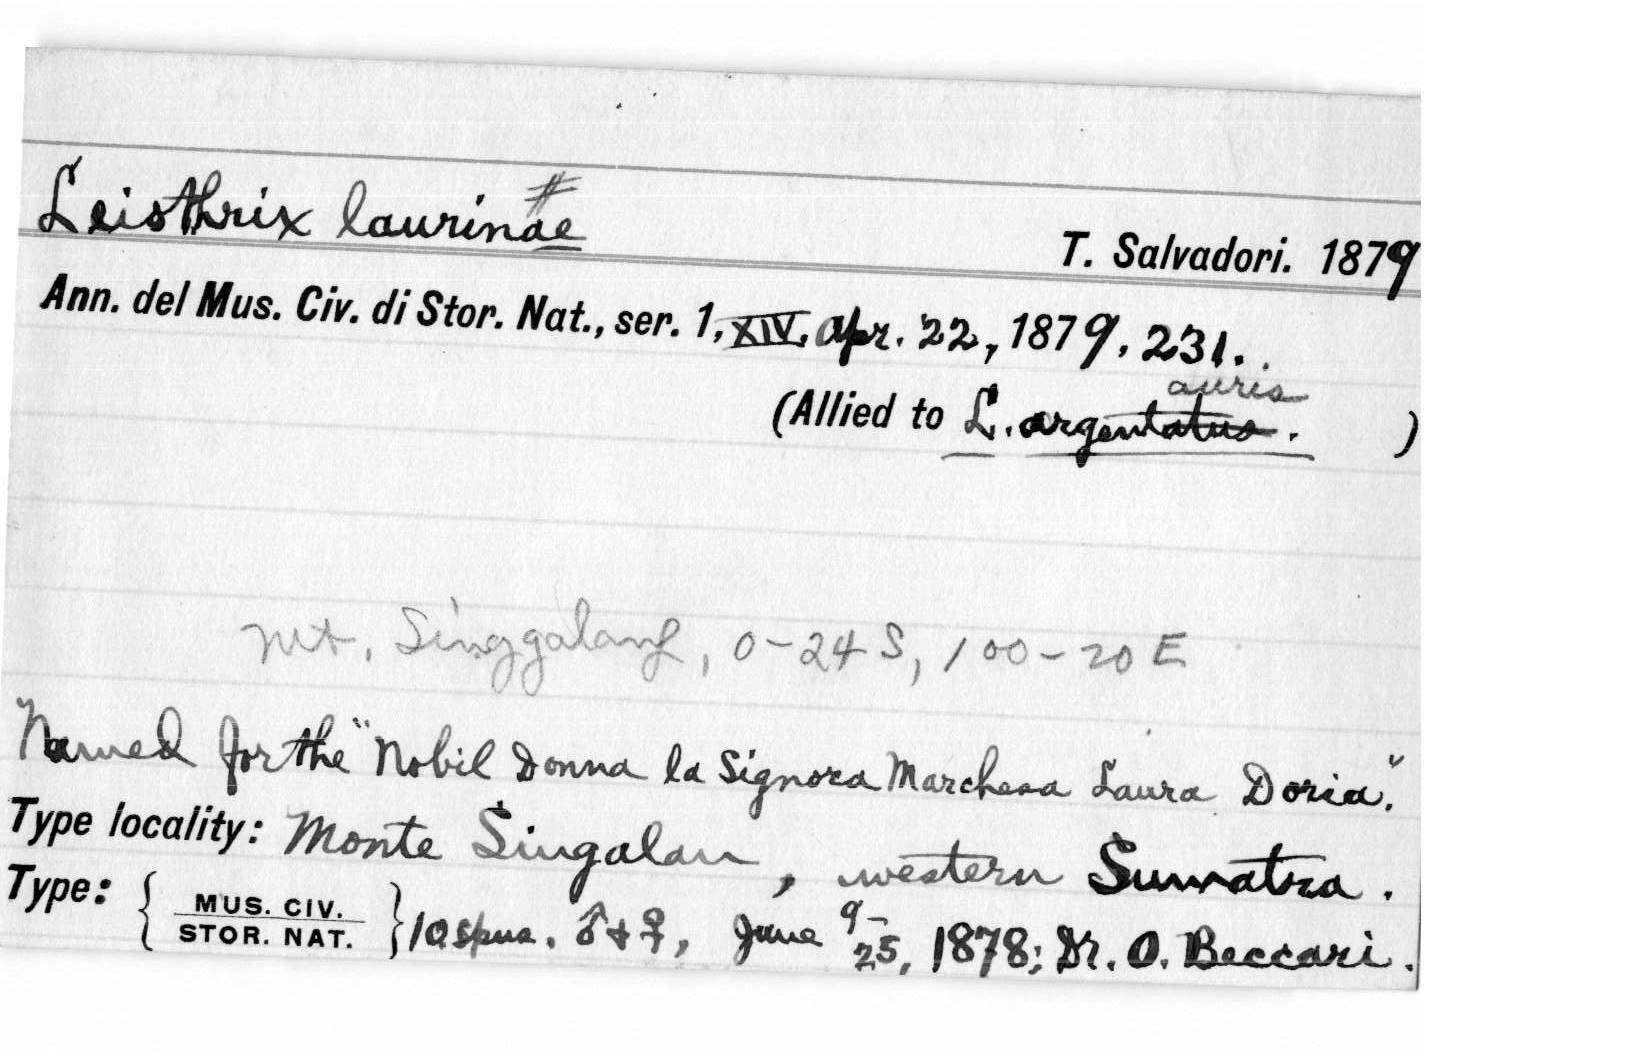 Leiothrix laurinae #
T. Salvadori. 1879
Ann. del Mus. Civ. di Stor. Nat., ser. 1, XIV, Apr. 22, 1879, 231.
auris
(Allied to L. argentatus. )
Mt. Singgalang, 0-24 S, 100-20 E
Named for the "Nobil Donna la Signora Marchesa Laura Doria."
Type locality: Monte Singalan, western Sumatra.
Type: { MUS. CIV. STOR. NAT. } 10 spms. ♂ + ♀, June 9-25, 1878; Dr. O. Beccari.